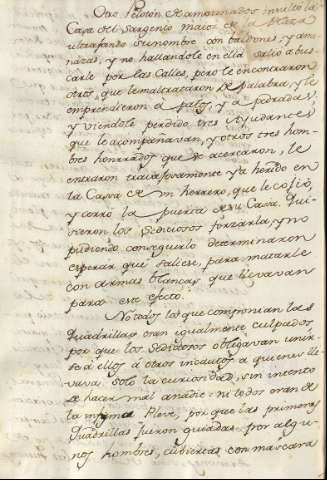 Otro Peloton de amotinados insultó la
Casa del Sargento maior de la Plaza
ultrajando su nombre con baldones, y ame
nazas, y no hallandole en ella salió a bus
carle por las Calles, pero le encontraron
otros, que le maltrataron de palabra, y le
emprendieron a palos, y a pedradas,
y viendole perdido tres Ayudantes
que le acompañavan, y otros tres hom
bres honrrados que se acercaron, le
entraron travajosamente ya herido en
la Casa de un herrero, que le cojió,
y cerró la puerta de su Casa. Qui
sieron los Sediciosos forzarla, y no
pudiendo conseguirlo determinaron
esperar que saliese, para matarle
con armas blancas que llevavan
para este efecto.
No todos los que componian las
Quadrillas eran igualmente culpados
por que los Sediciosos obligavan unir
se a ellos á otros incautos a quienes lle
vava solo la curiosidad, sin intento
de hacer mal a nadie: ni todos eran de
la infima Pleve, por que las primeras
Quadrillas fueron guiadas por algu
nos hombres, cubiertas con mascara